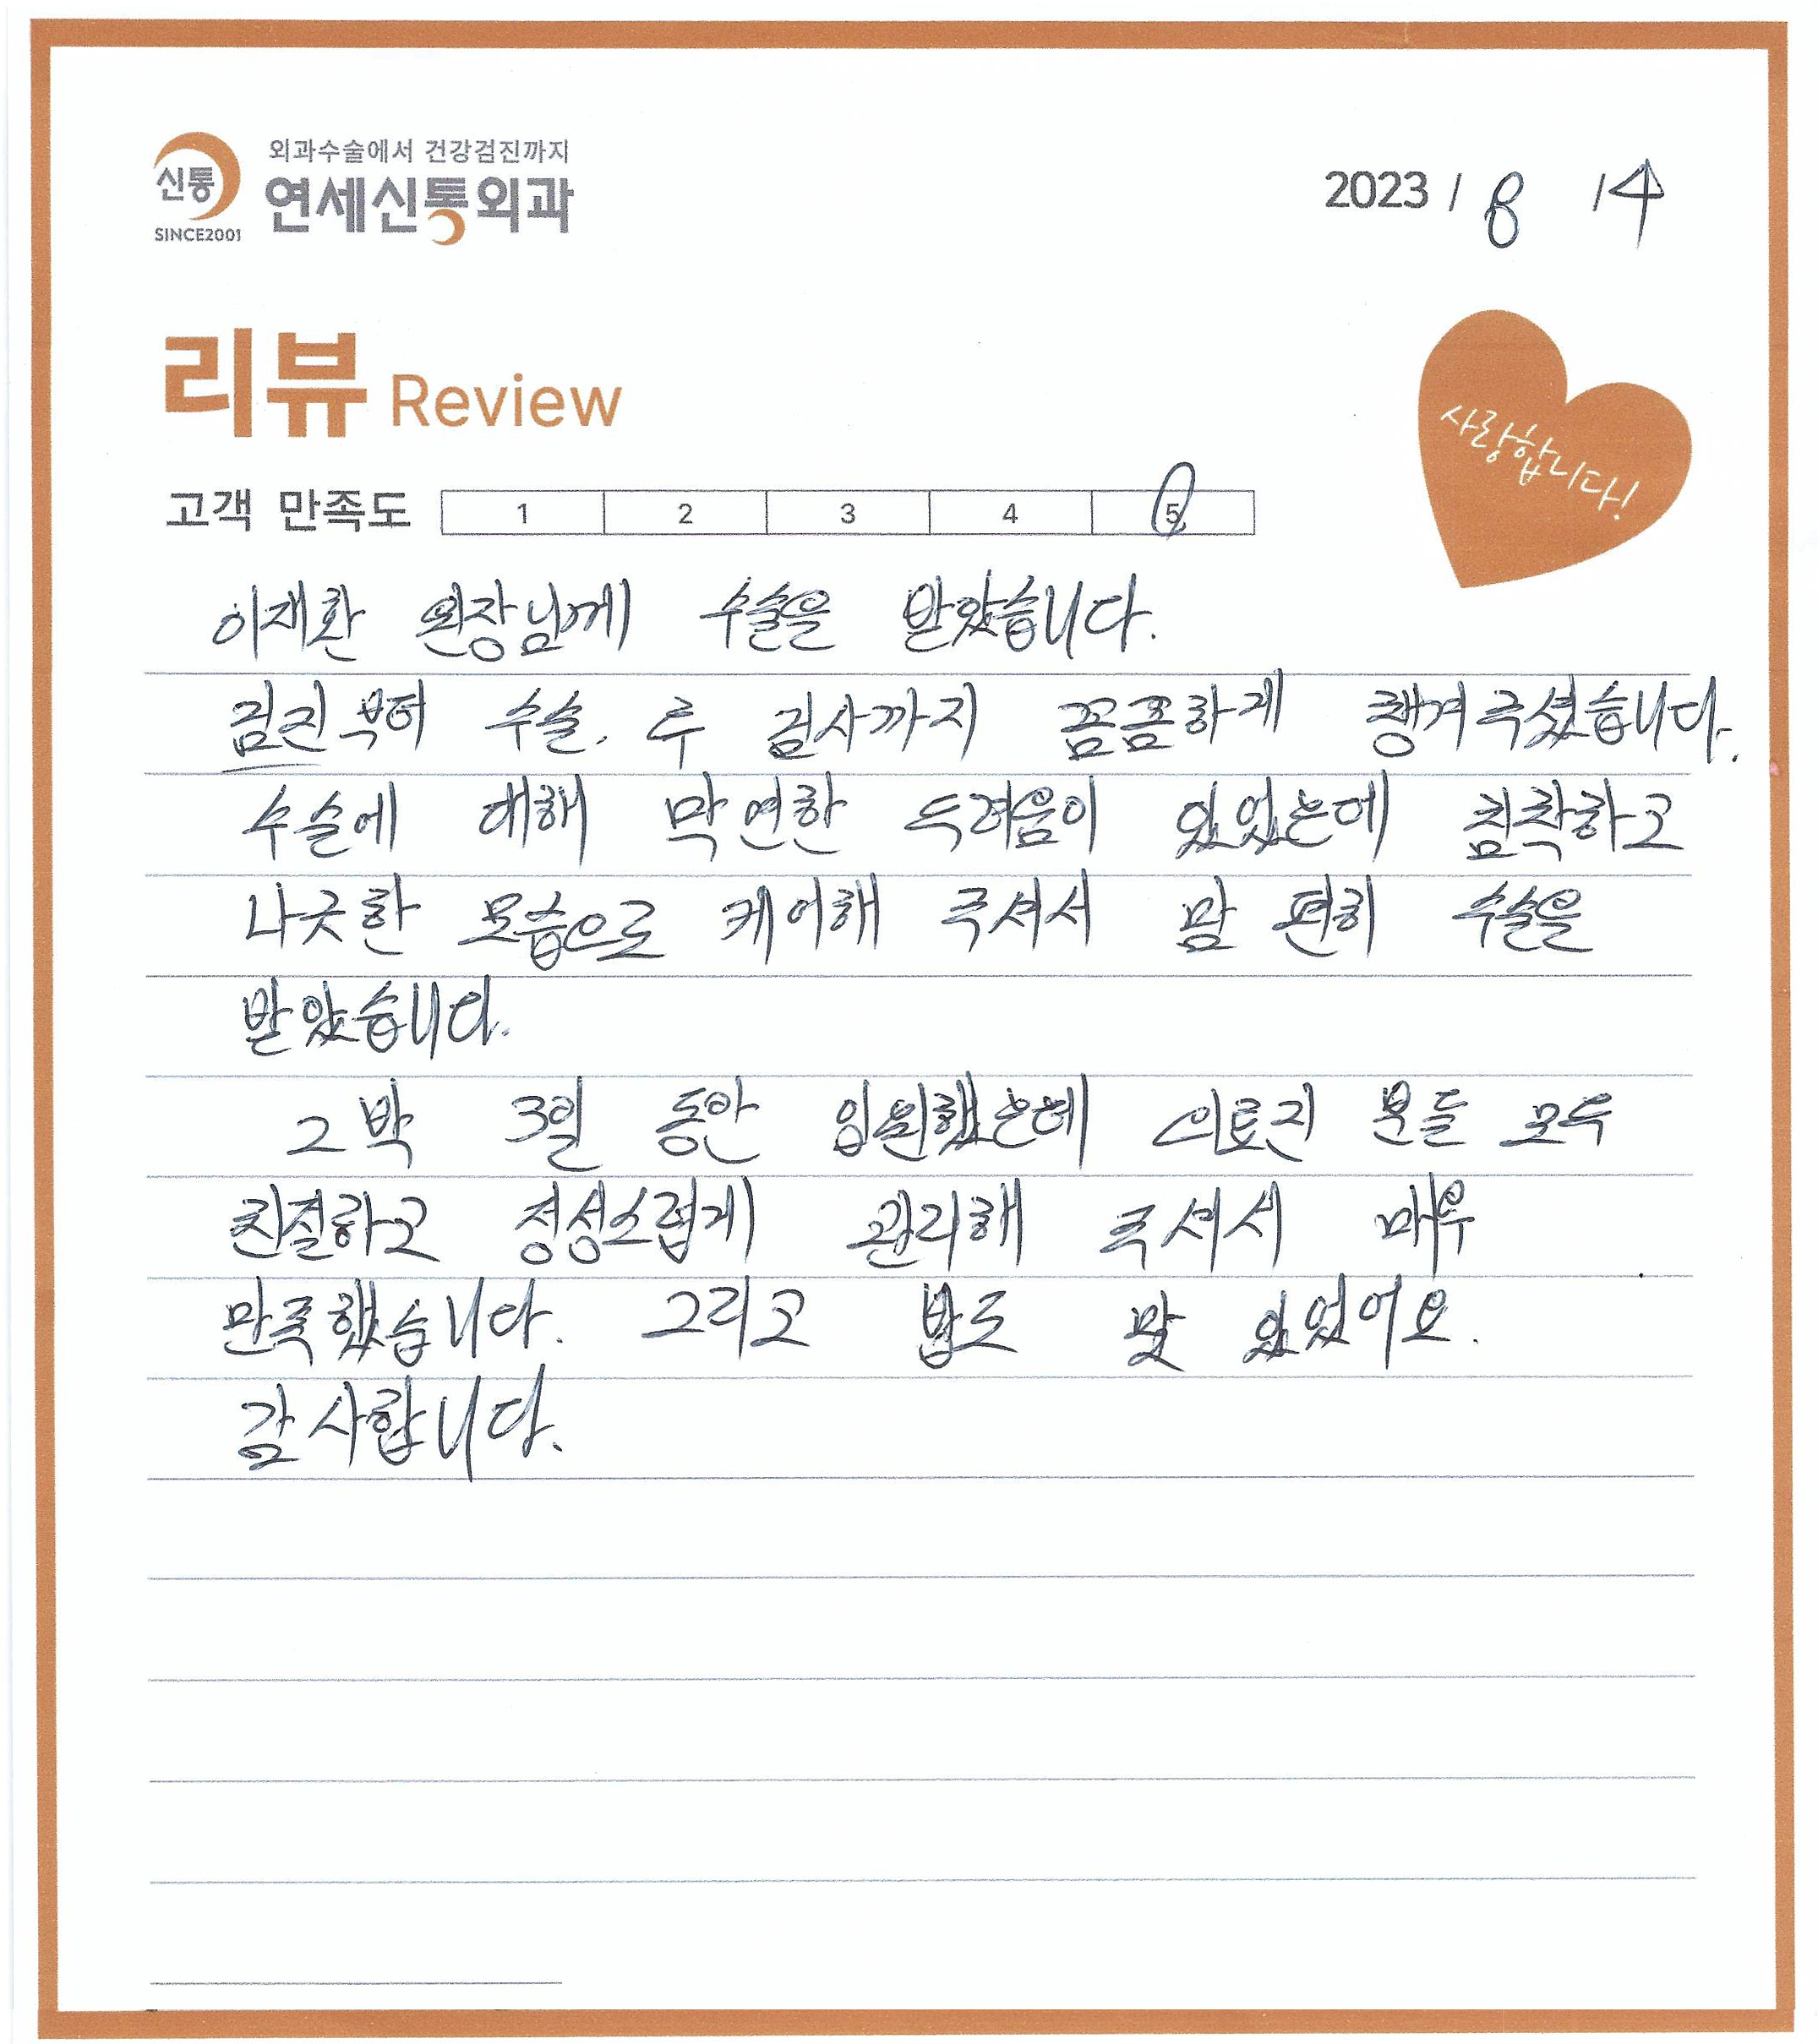 외과수술에서 건강검진까지
신통 연세신통외과
SINCE2001
2023 / 8 / 4
리뷰 Review
사랑합니다!
고객 만족도 1 2 3 4 5
이재환 원장님께 수술을 받았습니다.
검진부터 수술, 후 검사까지 꼼꼼하게 챙겨주셨습니다.
수술에 대해 막연한 두려움이 있었는데 침착하고
나긋한 모습으로 케어해 주셔서 맘 편히 수술을
받았습니다.
2박 3일 동안 입원했는데 의료진 분들 모두
친절하고 정성스럽게 관리해 주셔서 매우
만족했습니다. 그리고 밥도 맛 있었어요.
감사합니다.